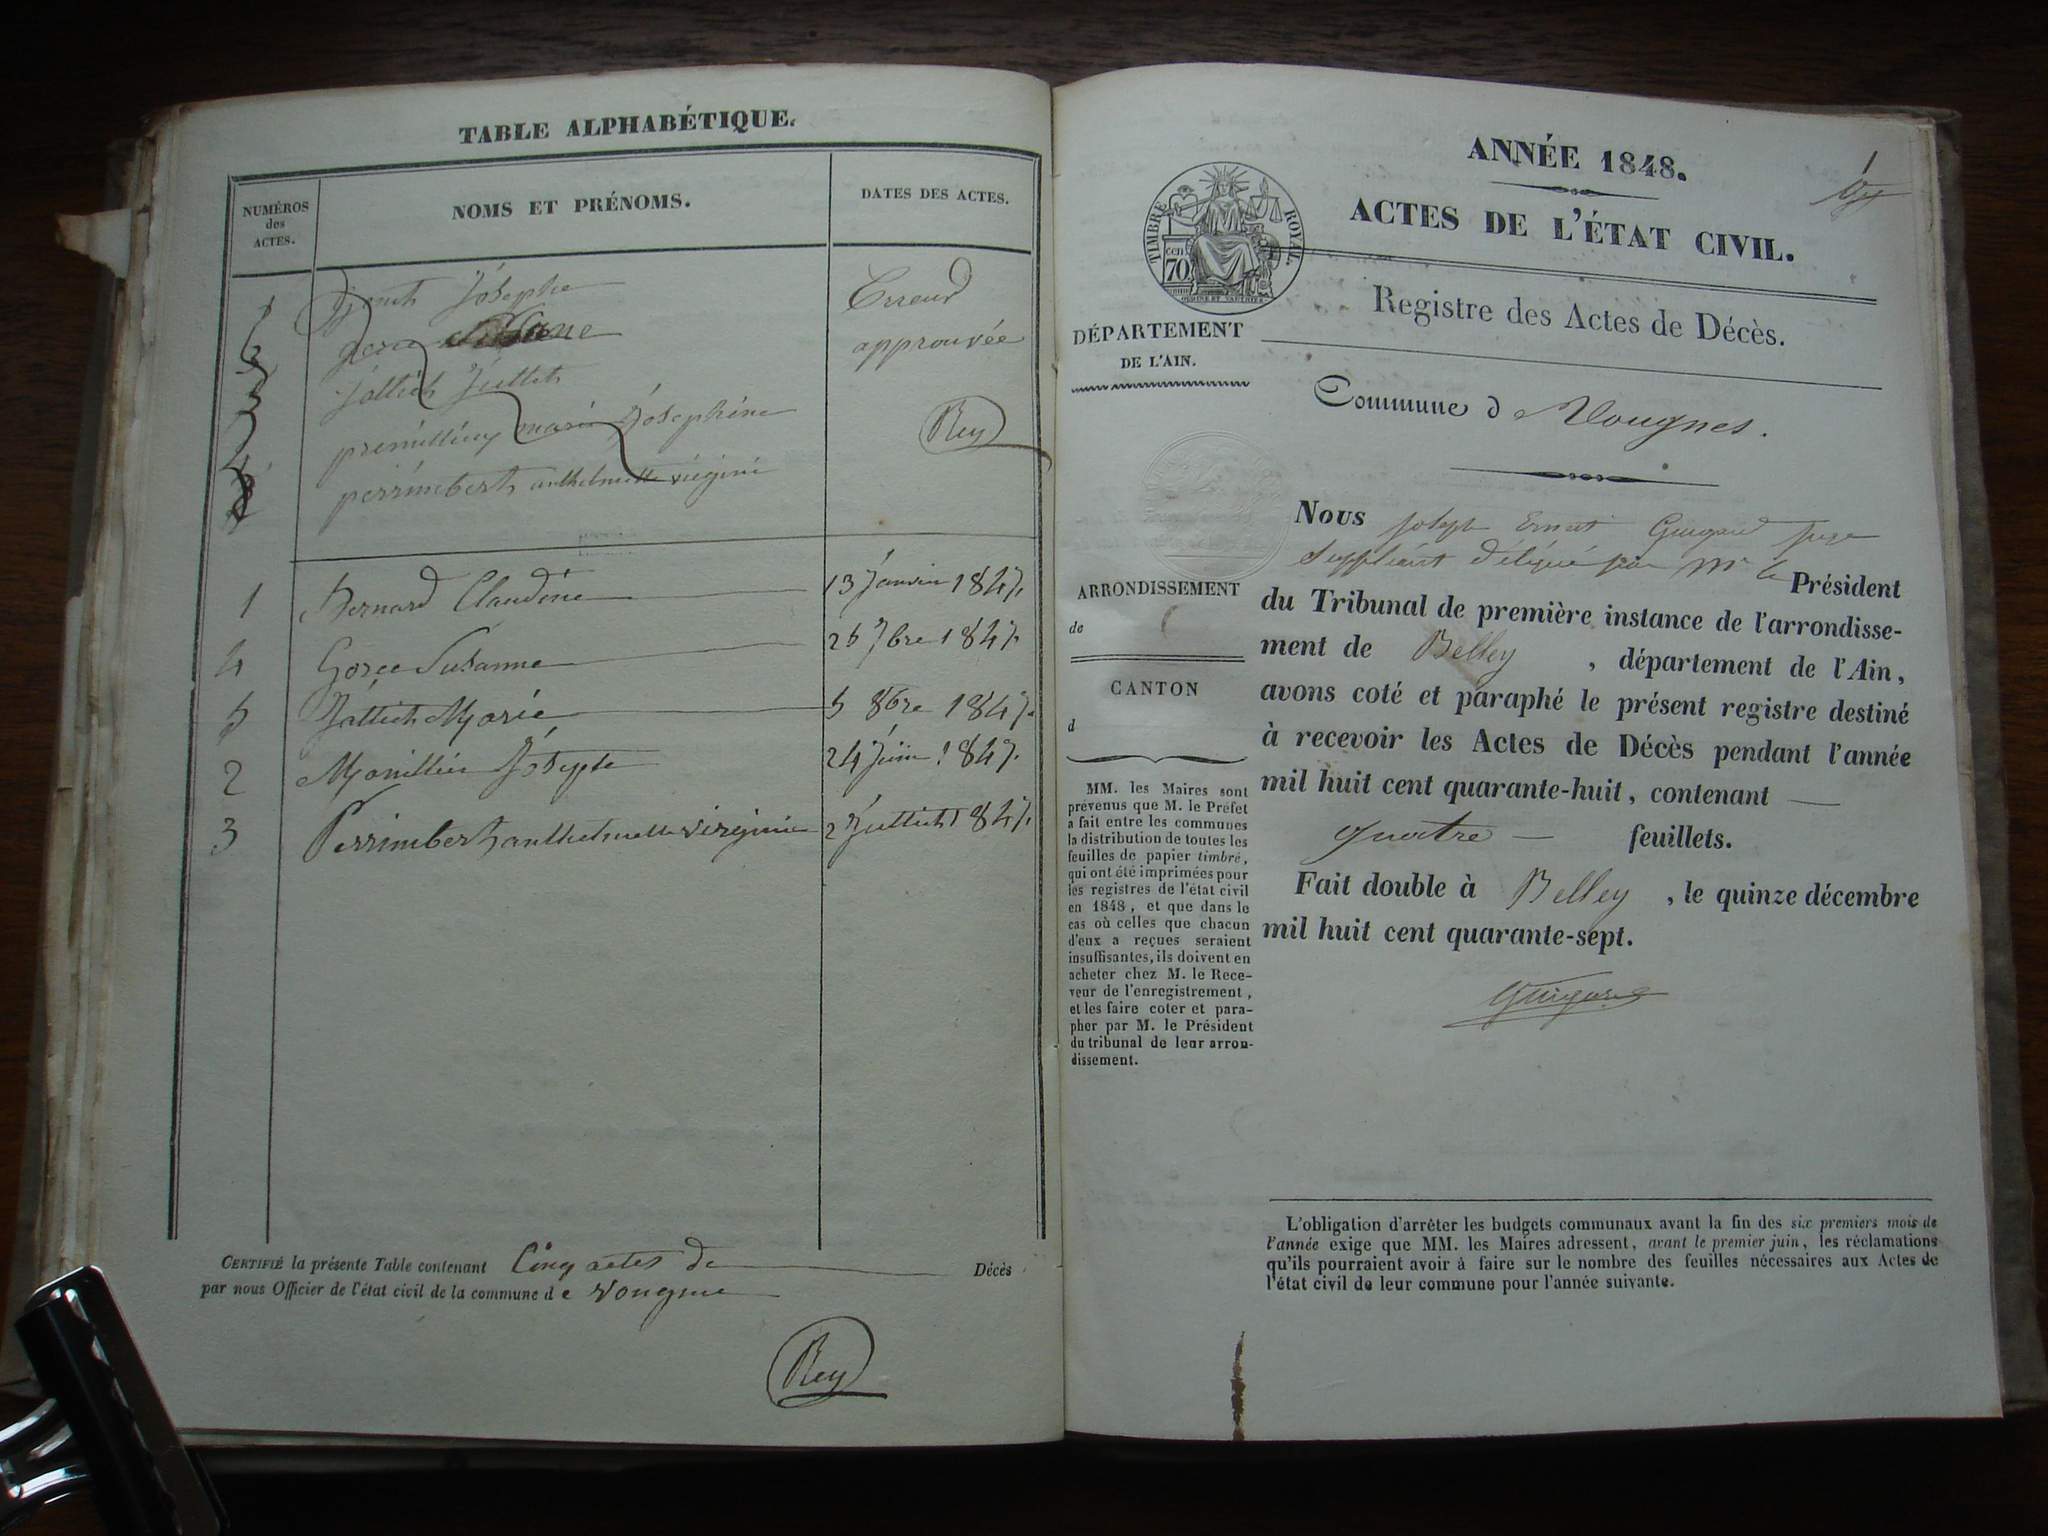 TABLE ALPHABÉTIQUE.
NUMÉROS
des
ACTES.
NOMS ET PRÉNOMS.
DATES DES ACTES.
Josephe
Erreur
approuvée
Juliet
marie Joséphine
Rey
perrimbert anthelmette virginie
1 Bernard Claudine 13 Janvier 1847.
4 Goree Susanne 26 7bre 1847.
5 Marie 5 8bre 1847.
2 Josephte 24 Juin 1847.
3 Perrimbert anthelmette virginie 2 Juillet 1847.
CERTIFIÉ la présente Table contenant Cinq actes de Décès
par nous Officier de l'état civil de la commune de Vongne
Rey
ANNÉE 1848.
ACTES DE L'ÉTAT CIVIL.
TIMBRE ROYAL
cen 70
Registre des Actes de Décès.
DÉPARTEMENT
DE L'AIN.
Commune d Vougnes.
Nous Joseph Ernest Guigard juge
suppléant délégué par Mr le Président
du Tribunal de première instance de l'arrondisse-
ment de Belley, département de l'Ain,
avons coté et paraphé le présent registre destiné
à recevoir les Actes de Décès pendant l'année
mil huit cent quarante-huit, contenant —
quatre — feuillets.
Fait double à Belley, le quinze décembre
mil huit cent quarante-sept.
Guigard
ARRONDISSEMENT
de
CANTON
d
MM. les Maires sont
prévenus que M. le Préfet
a fait entre les communes
la distribution de toutes les
feuilles de papier timbré,
qui ont été imprimées pour
les registres de l'état civil
en 1848, et que dans le
cas où celles que chacun
d'eux a reçues seraient
insuffisantes, ils doivent en
acheter chez M. le Rece-
veur de l'enregistrement,
et les faire coter et para-
pher par M. le Président
du tribunal de leur arron-
dissement.
L'obligation d'arrêter les budgets communaux avant la fin des six premiers mois de
l'année exige que MM. les Maires adressent, avant le premier juin, les réclamations
qu'ils pourraient avoir à faire sur le nombre des feuilles nécessaires aux Actes de
l'état civil de leur commune pour l'année suivante.